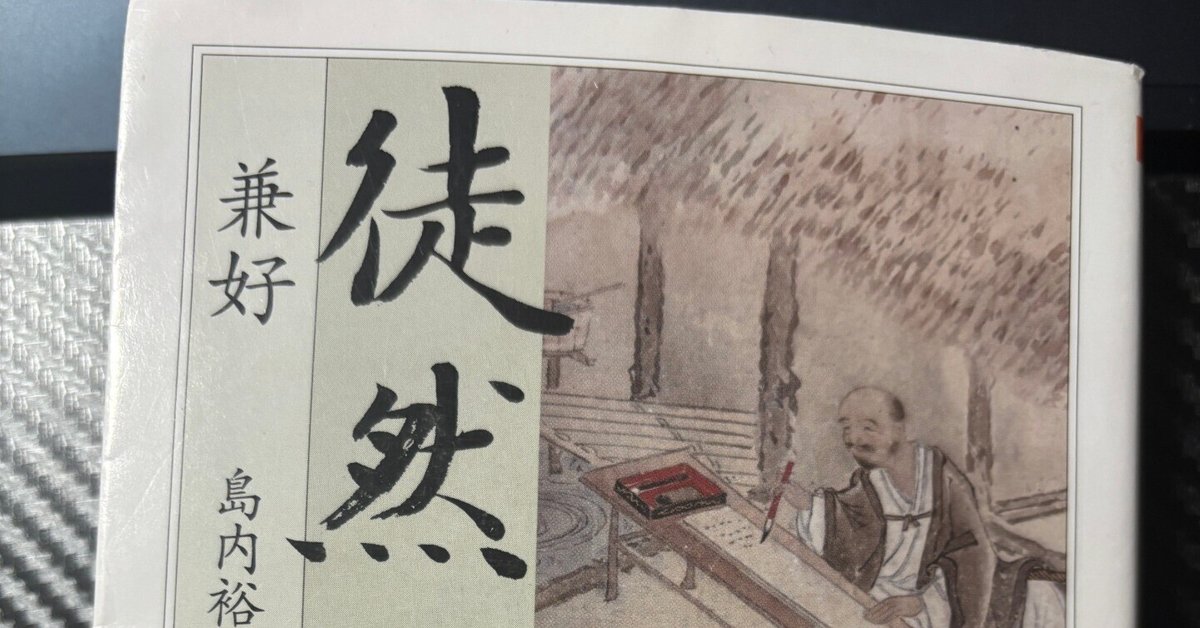 徒然
兼好
島内裕